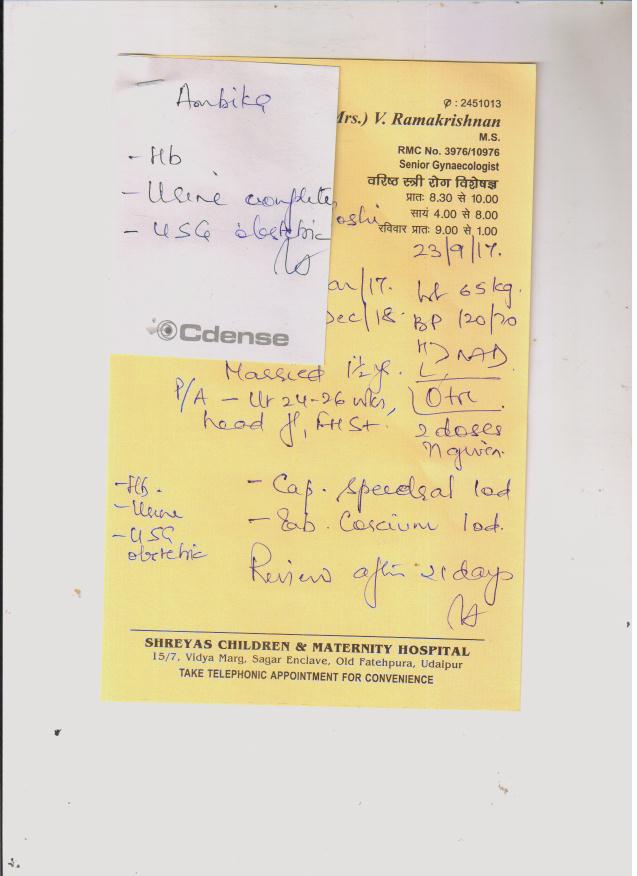 Ambika
- Hb
- Urine complete
- USG obstetric
Cdense
Ø : 2451013
Mrs.) V. Ramakrishnan
M.S.
RMC No. 3976/10976
Senior Gynaecologist
वरिष्ठ स्त्री रोग विशेषज्ञ
प्रातः 8.30 से 10.00
सायं 4.00 से 8.00
रविवार प्रातः 9.00 से 1.00
oshi
23/9/17.
/17. Wt 65kg.
Dec/18. BP 120/70
H
L NAD
Married 1½ yr.
P/A - Ut 24-26 wks,
head fl, FHS+.
2 doses
Tt given.
- Hb.
- Urine
- USG
obstetric
- Cap. Speedral 1od
- Tab. Coscium 1od.
Review after 21 days
SHREYAS CHILDREN & MATERNITY HOSPITAL
15/7, Vidya Marg, Sagar Enclave, Old Fatehpura, Udaipur
TAKE TELEPHONIC APPOINTMENT FOR CONVENIENCE